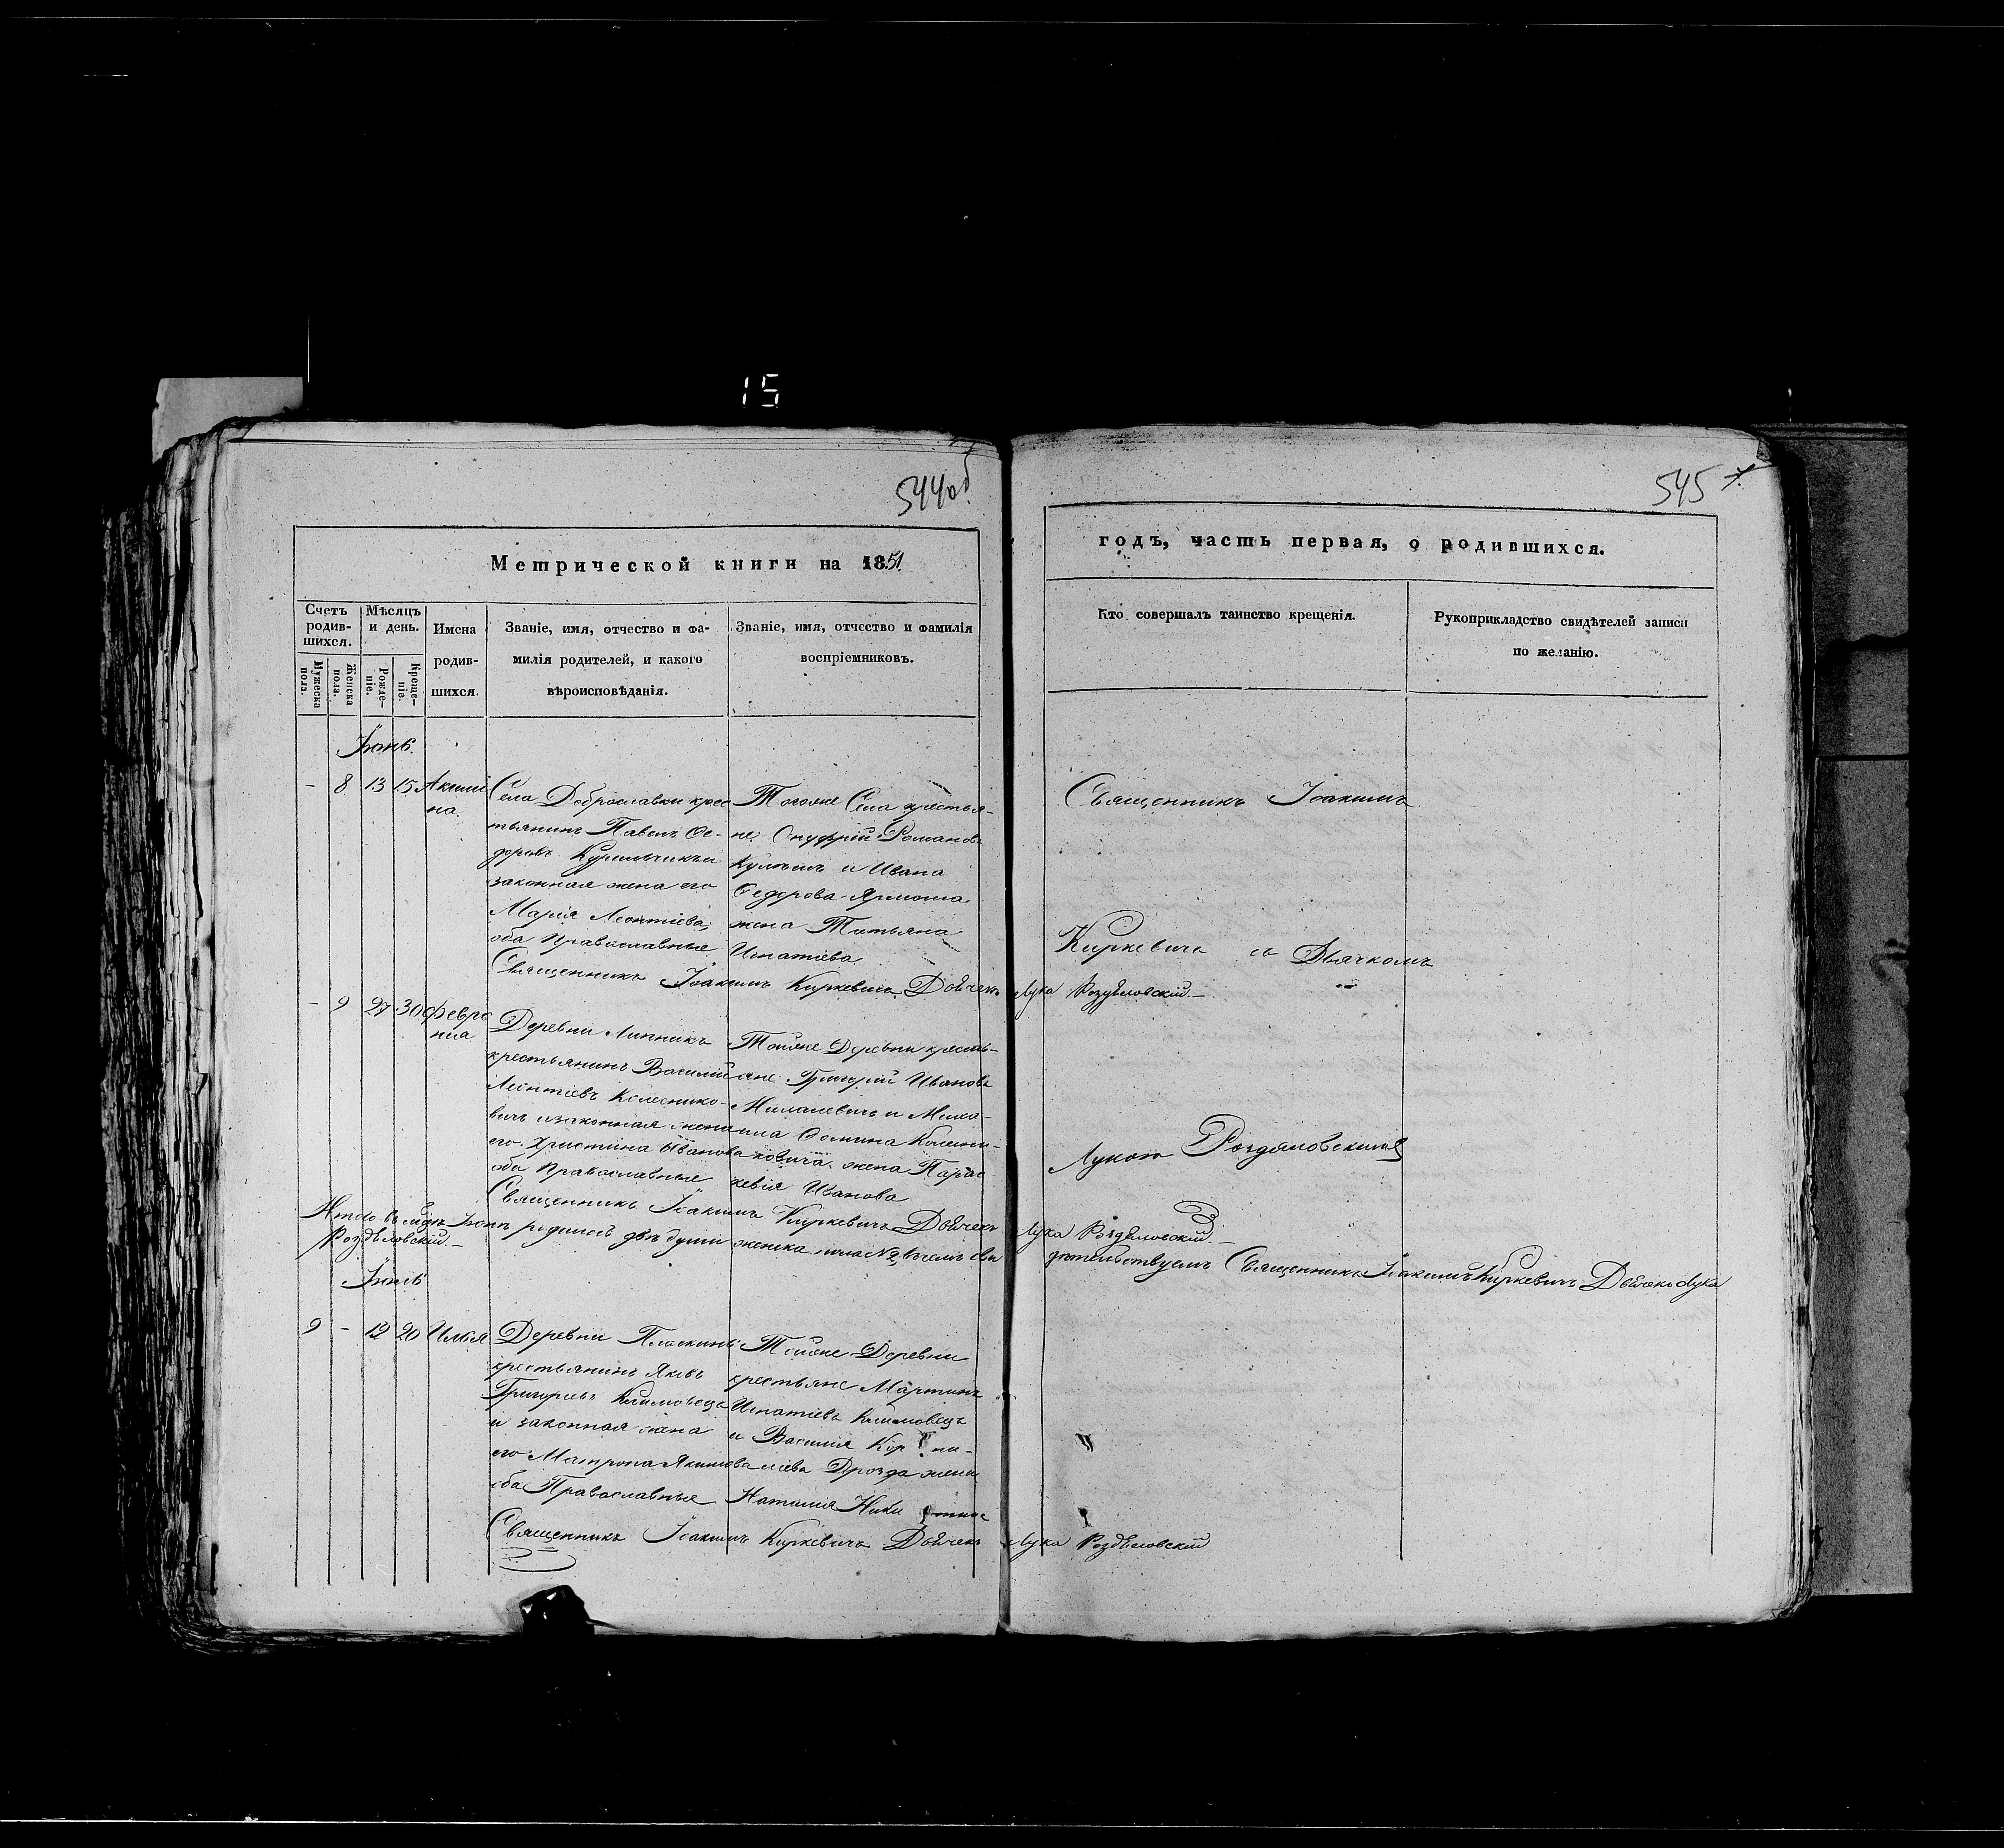 15
544об
545
Метрической книги на 1851
годъ, часть первая, о родившихся.
Счетъ родив-шихся.
Мужеска пола.
Женска пола.
Мѣсяцъ и день.
Рожде-ніе.
Креще-ніе.
Имена
родив-
шихся.
Званіе, имя, отчество и фа-
милія родителей, и какого
вѣроисповѣданія.
Званіе, имя, отчество и фамилія
воспріемниковъ.
Кто совершалъ таинство крещенія.
Рукоприкладство свидѣтелей записи
по желанію.
Іюнь.
- 8 13 15 Акили
на.
Села Доброславки крес
тьянинъ Павелъ Ѳе-
доровъ
законная жена его
Марія Леонтіева,
оба Православные
Тогоже Села крестья-
не Онуфрій Романовъ
и Ивана
Ѳедорова Ярмоша
жена Татьяна
Игнатіева
Священникъ Іоакимъ Киркевичъ Дьячекъ Лука Роздѣловскій.-
Священникъ Іоакимъ
Киркевичъ съ Дьячкомъ
Лукою Роздяловскимъ
- 9 27 30 Февро
нія
Деревни Липникъ
крестьянинъ Василій
Леонтіевъ Колеснико-
вичъ и законная жена
его Христина Иванова
оба Православные
Тойже Деревни кресть-
яне Григорій Ивановъ
и Миха-
ила Ѳомина Колесни-
ковича жена Парас
кевія Иванова
Священникъ Іоакимъ Киркевичъ Дьячекъ Лука Роздѣловскій.-
Итого въ мцѣ Іюнѣ родилось двѣ души женска пола №2, въ чемъ сви
дѣтельствуемъ Священникъ Іоакимъ Киркевичъ Дьячекъ Лука
Роздѣловскій.-
Іюль
9 - 12 20 Илья
Деревни Пласкинь
крестьянинъ Яковъ
Григорьевъ Климовецъ
и законная жена
его Матрона Якимова
оба Православные
Тойже Деревни
крестьяне Мартинъ
Игнатіевъ Климовецъ
и Василія Кор ни-
ліева Дрозда жена
Наталія
Священникъ Іоакимъ Киркевичъ Дьячекъ Лука Роздѣловскій